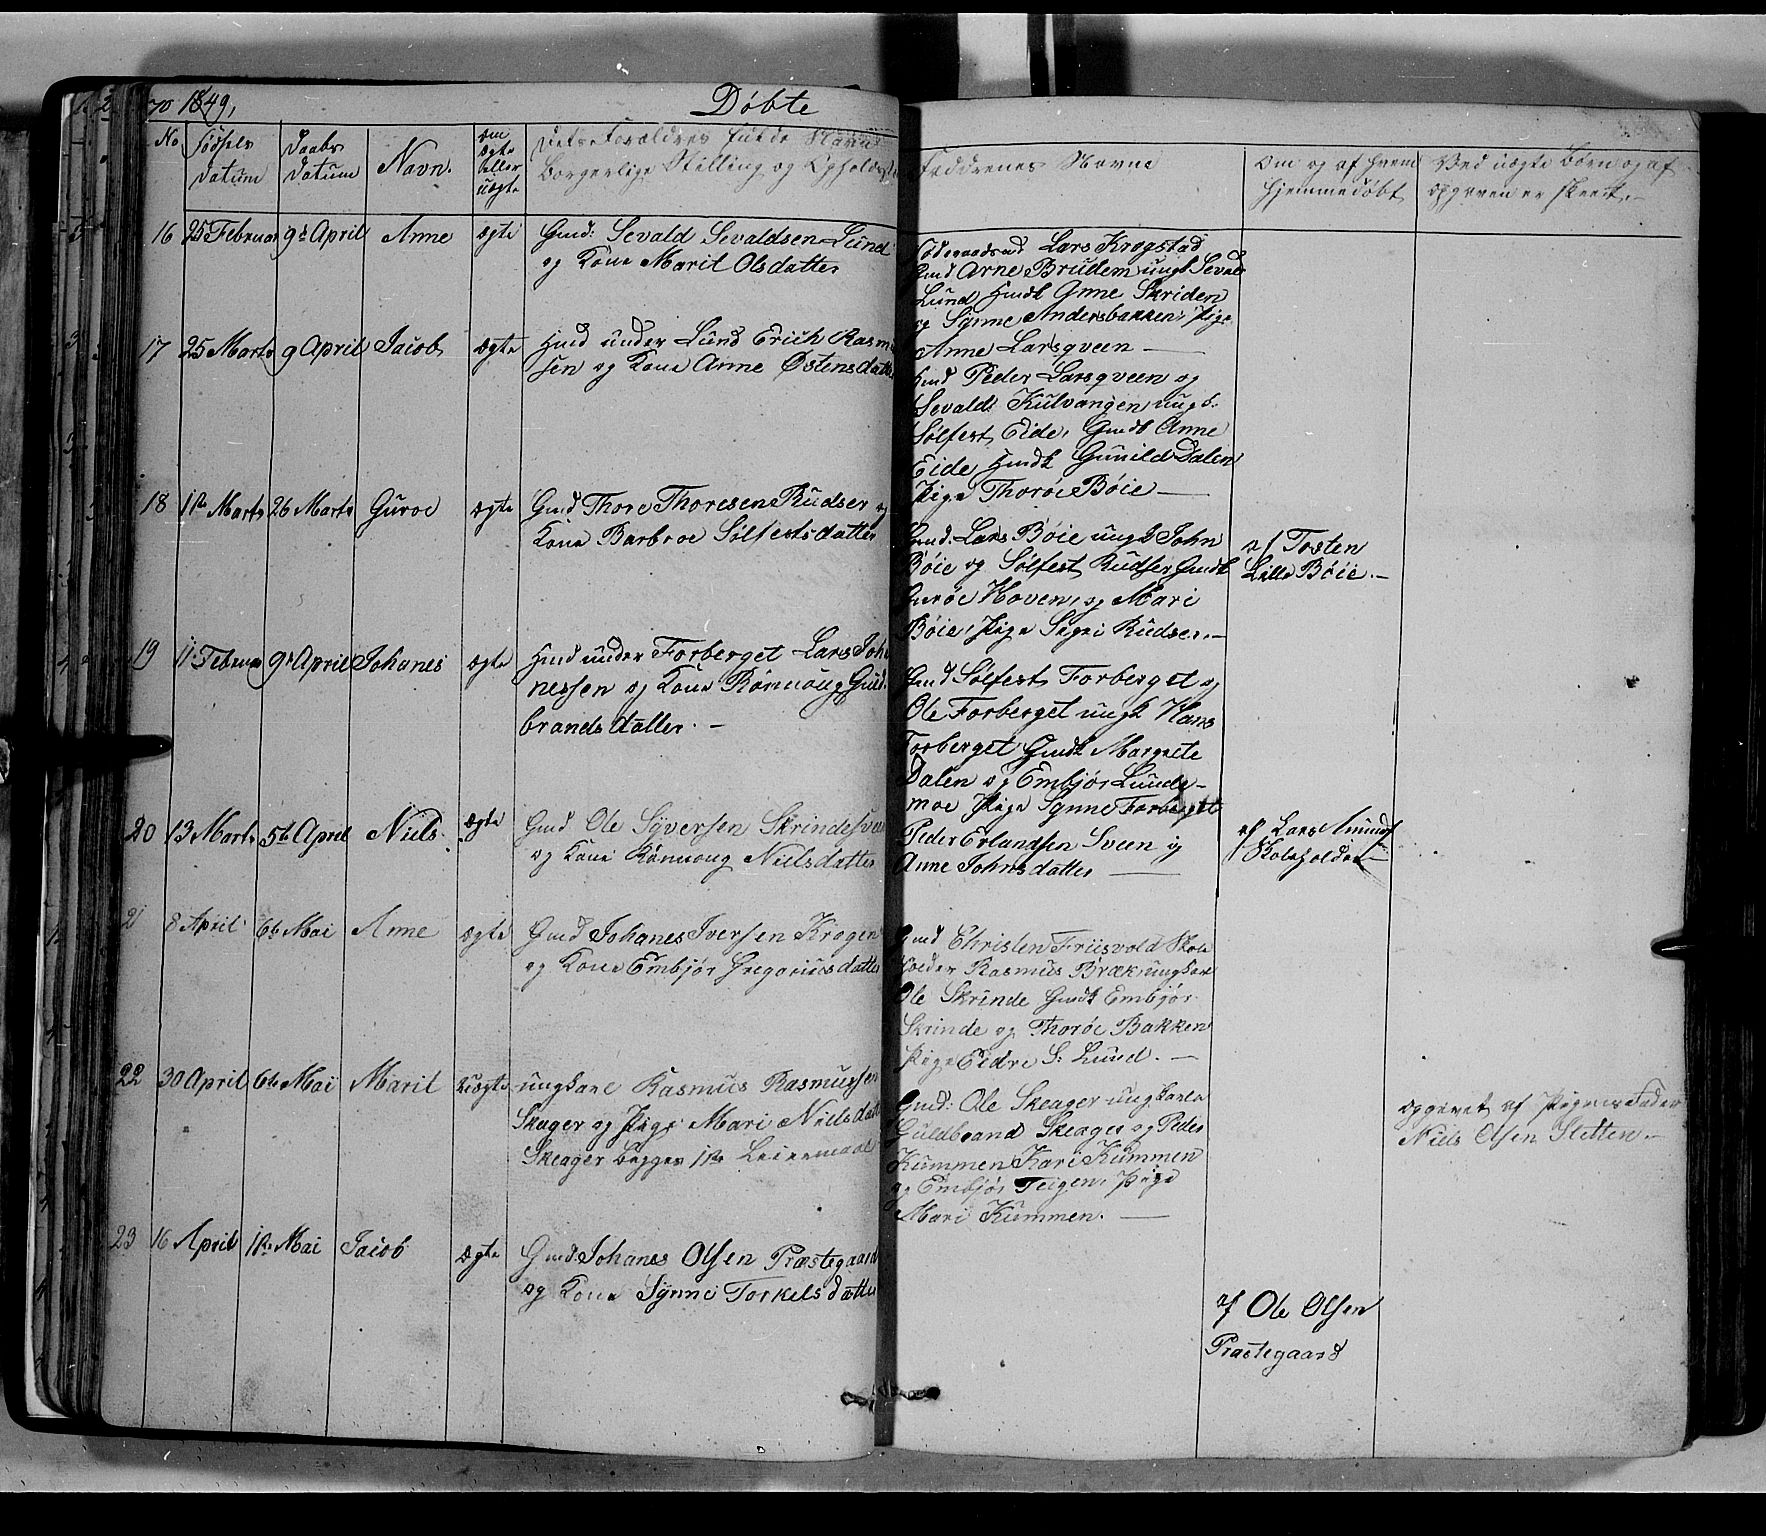 70 1849, Døbte
No Fødsels Datum Daabs Datum Navn. Om ægte eller uægte Dets Forældres fulde Navn
Borgerlige Stilling og Opholds
Faddrenes Navne
Om og af hvem hjemmedøbt
Ved uægte Børn og af
opgiven er skeet.
16 25 Februar 9d April Anne ægte Gmd: Sevald Sevaldsen Lund
og Kone Marit Olsdatter
Lars Krogstad
Gmd Arne Brudem ungk Sevald
Lund, Hmdk Anne Skriden
og Synne Andersbakken, Pige
Anne Larsqveen
17 25 Marts 9 April Jacob ægte Hmd under Lund Erich Rasm
sen og Kone Anne Østensdatter
Hmd Peder Larsqveen og
Sevald Kulvangen ungk:
Sølfest Eide, Gmdk Anne
Eide Hmdk Gunild Dalen
Pige Thorøe Bøie
18 1ste Marts 26 Marts Guroe ægte Gmd Thore Thoresen Rudser og
Kone Barbroe Sølfestsdatter
Gmd. Lars Bøie ungk John
Bøie og Sølfest Rudser Gmdk
Guroe Hoven, og Mari
Bøie, Pige Sigri Rudser.
af Tosten
Lille Bøie.
19 11 Februar 9d April Johanes ægte Hmd under Forberget Lars Joha
nessen og Kone Rønnoug Guld
brandsdatter.
Gmd Sølfest Forberget og
Ole Forberget ungk Hans
Forberget Gmdk Margrete
Dalen og Embjør Lunde-
moe Pige Synne Forberget
20 13 Marts 5te April Niels. ægte Gmd Ole Syversen Skrindesveen
og Kone Rønnoug Nielsdatter
Peder Erlandsen Sveen og
Anne Johnsdatter
af Lars Amunds
Skoleholder
21 8 April 6te Mai Anne ægte Gmd Johanes Iversen Krogen
og Kone Embjør Gregoriusdatter
Gmd Christen Friisvold Skole
holder Rasmus Bræk ungkare
Ole Skrinde Gmdk Embjør
Skrinde og Thorøe Bakken
Pige Eidre S: Lund.
22 30 April 6te Mai Marit uægte ungkare Rasmus Rasmussen
Skeager og Pige Mari Nielsdatt
Skeager begges 1ste Leiermaal
Gmd: Ole Skeager ungkarle
Guldbrand Skeager og Peder
Kummen Kari Kummen
og Embjør Teigen, Pige
Mari Kummen.
opgivet af Pigens Fader
Niels Olsen Sletten.
23 16 April 1ste Mai Jacob ægte Gmd: Johanes Olsen Præstegaard
og Kone Synne Torkelsdatter
af Ole Olsen
Præstegaard